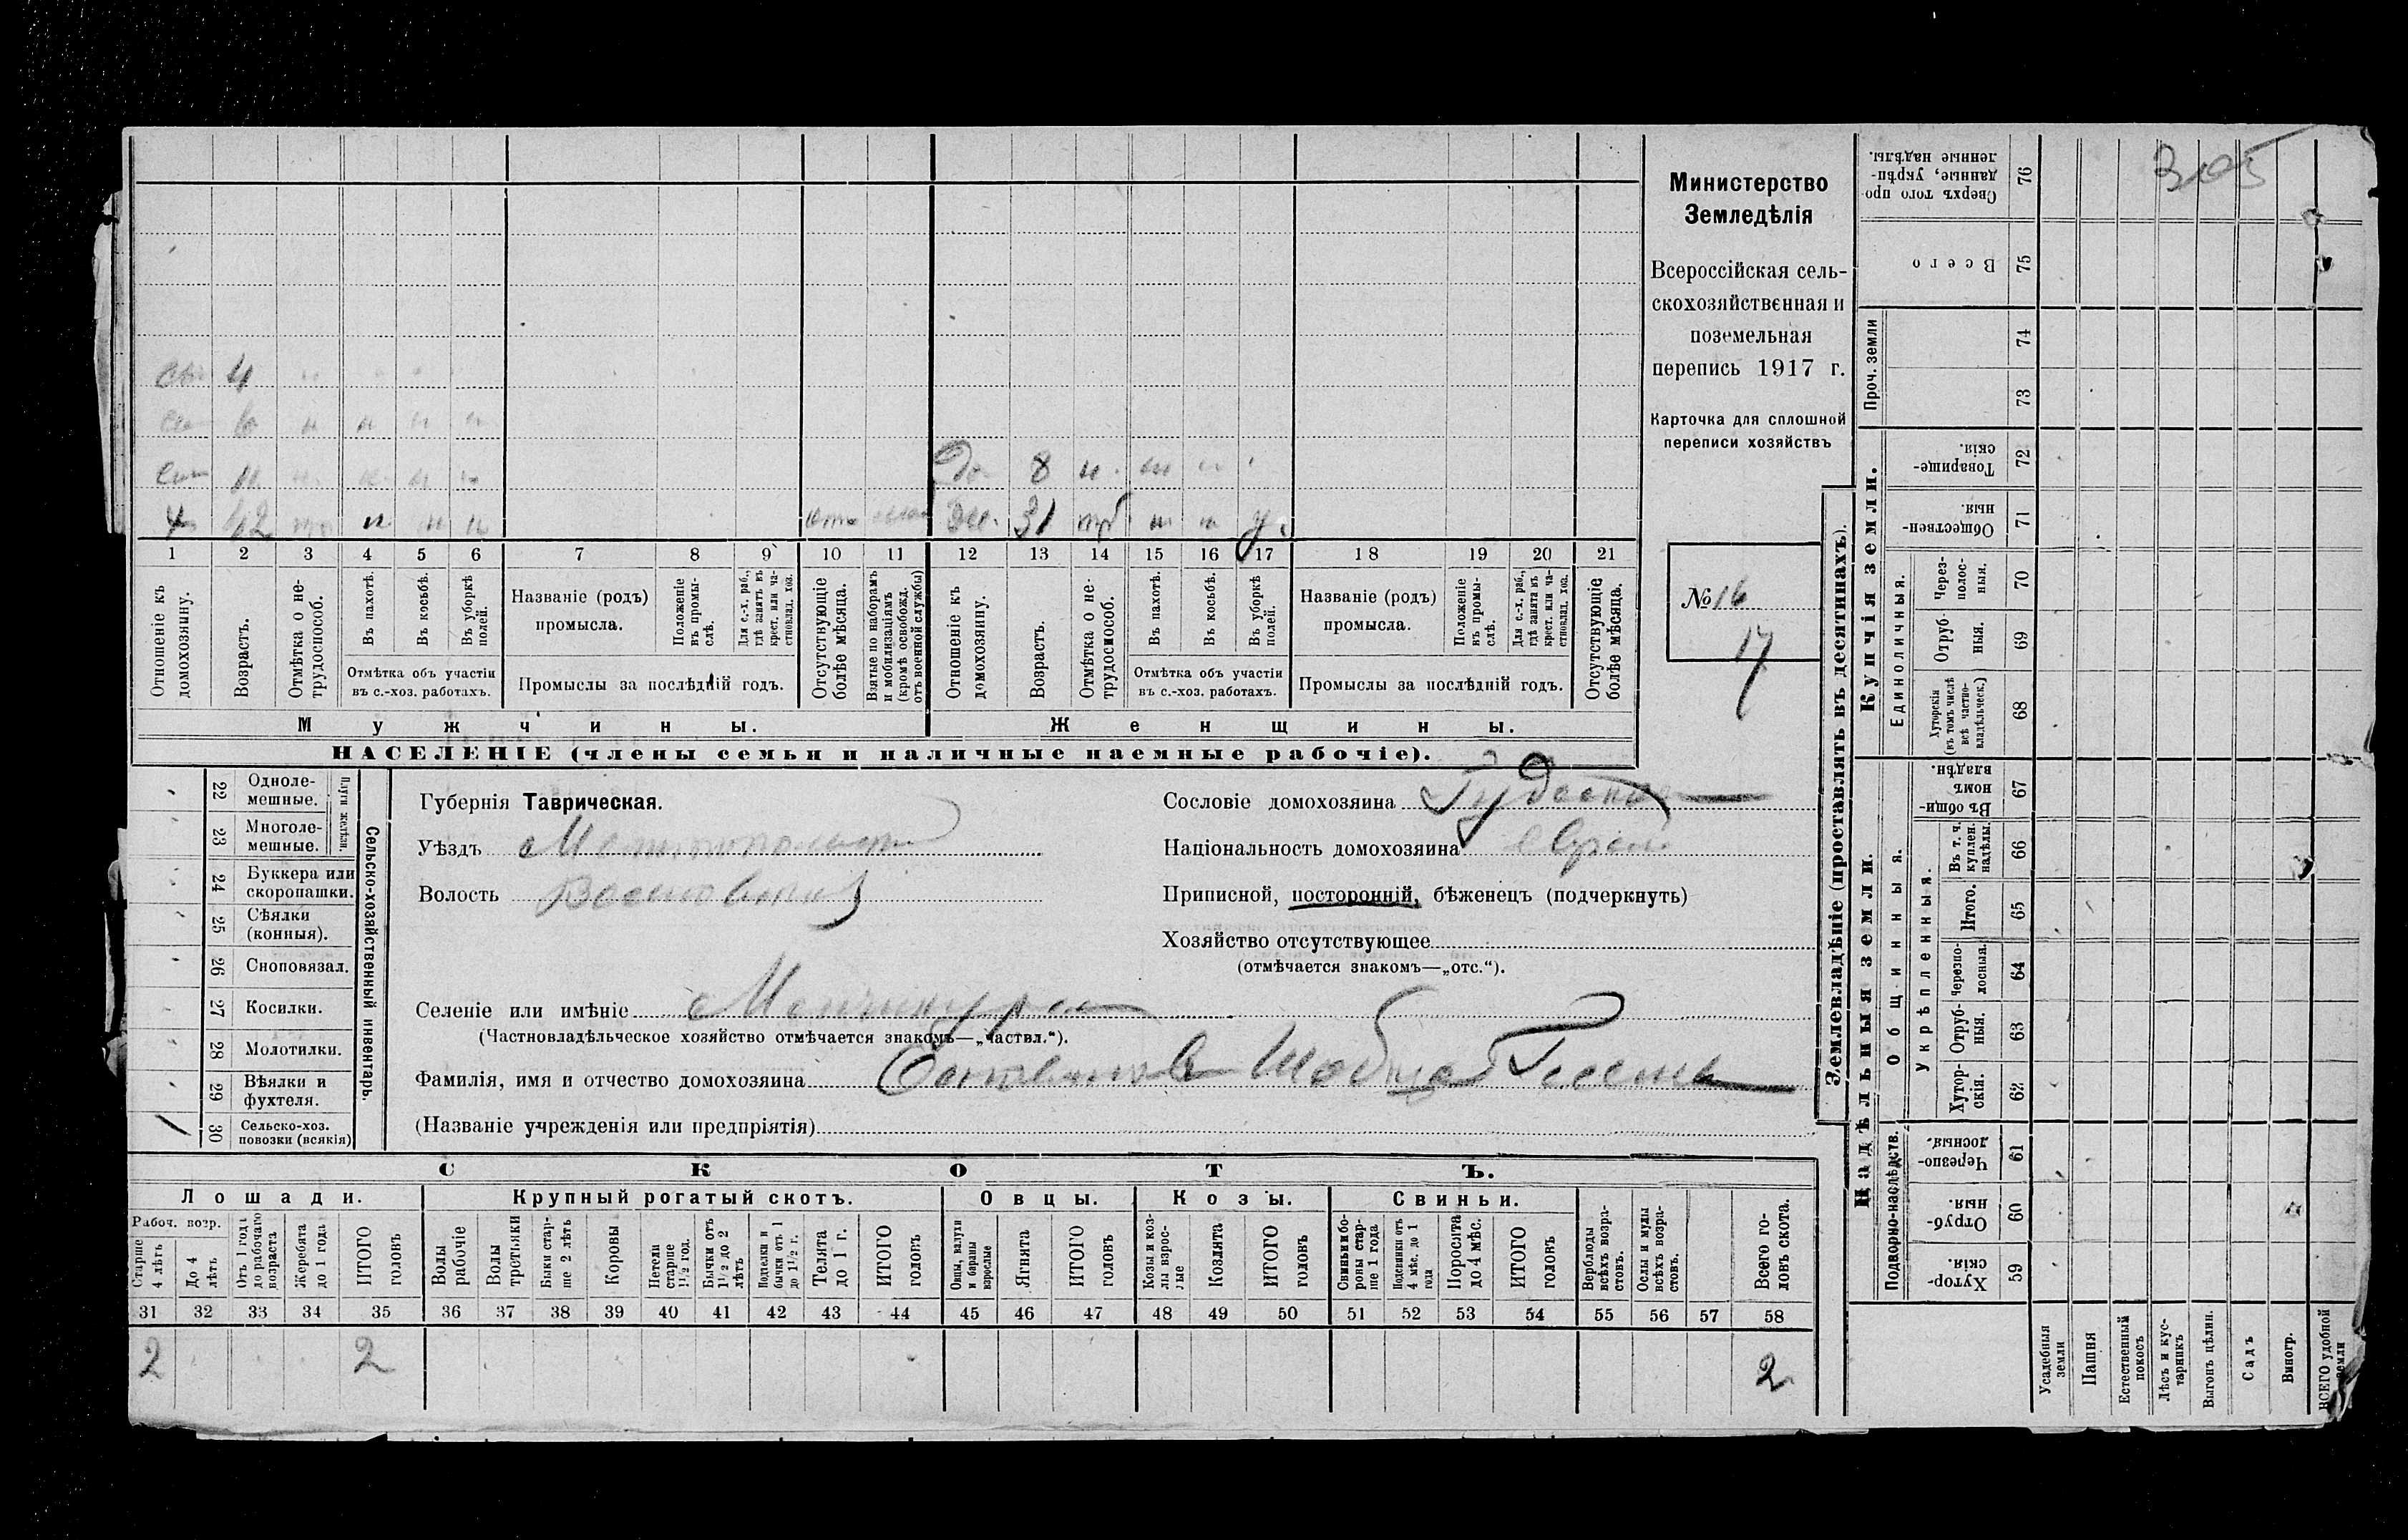 305
Министерство
Земледѣлія
Всероссійская сель-
скохозяйственная и
поземельная
перепись 1917 г.
Карточка для сплошной
переписи хозяйствъ
№ 16
17
4
6
11
До 8 н.
42
31
у.
1 2 3 4 5 6 7 8 9 10 11 12 13 14 15 16 17 18 19 20 21
Отношеніе къ домохозяину.
Возрастъ.
Отмѣтка о не-трудоспособ.
Въ пахотѣ.
Въ косьбѣ.
Въ уборкѣ полей.
Отмѣтка объ участіи
въ с.-хоз. работахъ.
Названіе (родъ)
промысла.
Положеніе въ промы-слѣ.
Для с.-х. раб., гдѣ занятъ въ крест. или ча-стновлад. хоз.
Промыслы за послѣдній годъ.
Отсутствующіе болѣе мѣсяца.
Взятые по наборамъ и мобилизаціямъ (кромѣ освобожд. отъ военной службы)
Отношеніе къ домохозяину.
Возрастъ.
Отмѣтка о не-трудоспособ.
Въ пахотѣ.
Въ косьбѣ.
Въ уборкѣ полей.
Отмѣтка объ участіи
въ с.-хоз. работахъ.
Названіе (родъ)
промысла.
Положеніе къ промы-слѣ.
Для с.-х. раб., гдѣ занята въ крест. или ча-стновлад. хоз.
Промыслы за послѣдній годъ.
Отсутствующіе болѣе мѣсяца.
Мужчины.
Женщины.
НАСЕЛЕНІЕ (члены семьи и наличные наемные рабочіе).
Сельско-хозяйственный инвентарь.
Плуги желѣзн.
22 Одноле-мешные.
23 Многоле-мешные.
24 Буккера или скоропашки.
25 Сѣялки (конныя).
26 Сноповязал.
27 Косилки.
28 Молотилки.
29 Вѣялки и фухтеля.
30 Сельско-хоз. повозки (всякія)
1
Губернія Таврическая.
Уѣздъ
Волость
Сословіе домохозяина
Національность домохозяина еврей
Приписной, посторонній, бѣженецъ (подчеркнуть)
Хозяйство отсутствующее
(отмѣчается знакомъ—„отс.“).
Селеніе или имѣніе
(Частновладѣльческое хозяйство отмѣчается знакомъ—„частвл.“).
Фамилія, имя и отчество домохозяина
(Названіе учрежденія или предпріятія)
СКОТЪ.
Лошади.
Крупный рогатый скотъ.
Овцы.
Козы.
Свиньи.
Рабоч. возр.
Старше 4 лѣтъ
До 4 лѣтъ
Отъ 1 года до рабочаго возраста
Жеребята до 1 года
ИТОГО головъ
Волы рабочіе
Волы третьяки
Быки стар-ше 2 лѣтъ
Коровы
Нетели старше 1½ год.
Бычки отъ 1½ до 2 лѣтъ
Подтелки и бычки отъ 1 до 1½ г.
Телята до 1 г.
ИТОГО головъ
Овцы, валухи и бараны взрослые
Ягнята
ИТОГО головъ
Козы и коз-лы взрос-лые
Козлята
ИТОГО головъ
Свиньи и бо-ровы стар-ше 1 года
Подсвинки отъ 4 мѣс. до 1 года
Поросята до 4 мѣс.
ИТОГО головъ
Верблюды всѣхъ возра-стовъ.
Ослы и мулы всѣхъ возра-стовъ.
Всего го-ловъ скота.
31 32 33 34 35 36 37 38 39 40 41 42 43 44 45 46 47 48 49 50 51 52 53 54 55 56 57 58
2 2 2
Землевладѣніе (проставлять въ десятинахъ).
Купчія земли.
Надѣльныя земли.
Сверхъ того про-данные, укрѣп-ленные надѣлы. 76
Всего 75
Проч. земли 74
73
Товарище-скія. 72
Обществен-ныя. 71
Единоличныя.
Через-полос-ныя. 70
Отруб-ныя. 69
Хуторскія (въ томъ числѣ всѣ частно-владѣльческ.) 68
Общинныя.
Въ общи-номъ владѣн. 67
Укрѣпленныя.
Въ т. ч. куплен. надѣлы. 66
Итого. 65
Черезпо-лосныя. 64
Отруб-ныя. 63
Хутор-скія. 62
Подворно-наслѣдств.
Черезпо-лосныя. 61
Отруб-ныя. 60
Хутор-скія. 59
Усадебныя земли
Пашня
Естественный покосъ
Лѣсъ и кус-тарникъ
Выгонъ цѣлин.
Садъ
Виногр.
ВСЕГО удобной земли